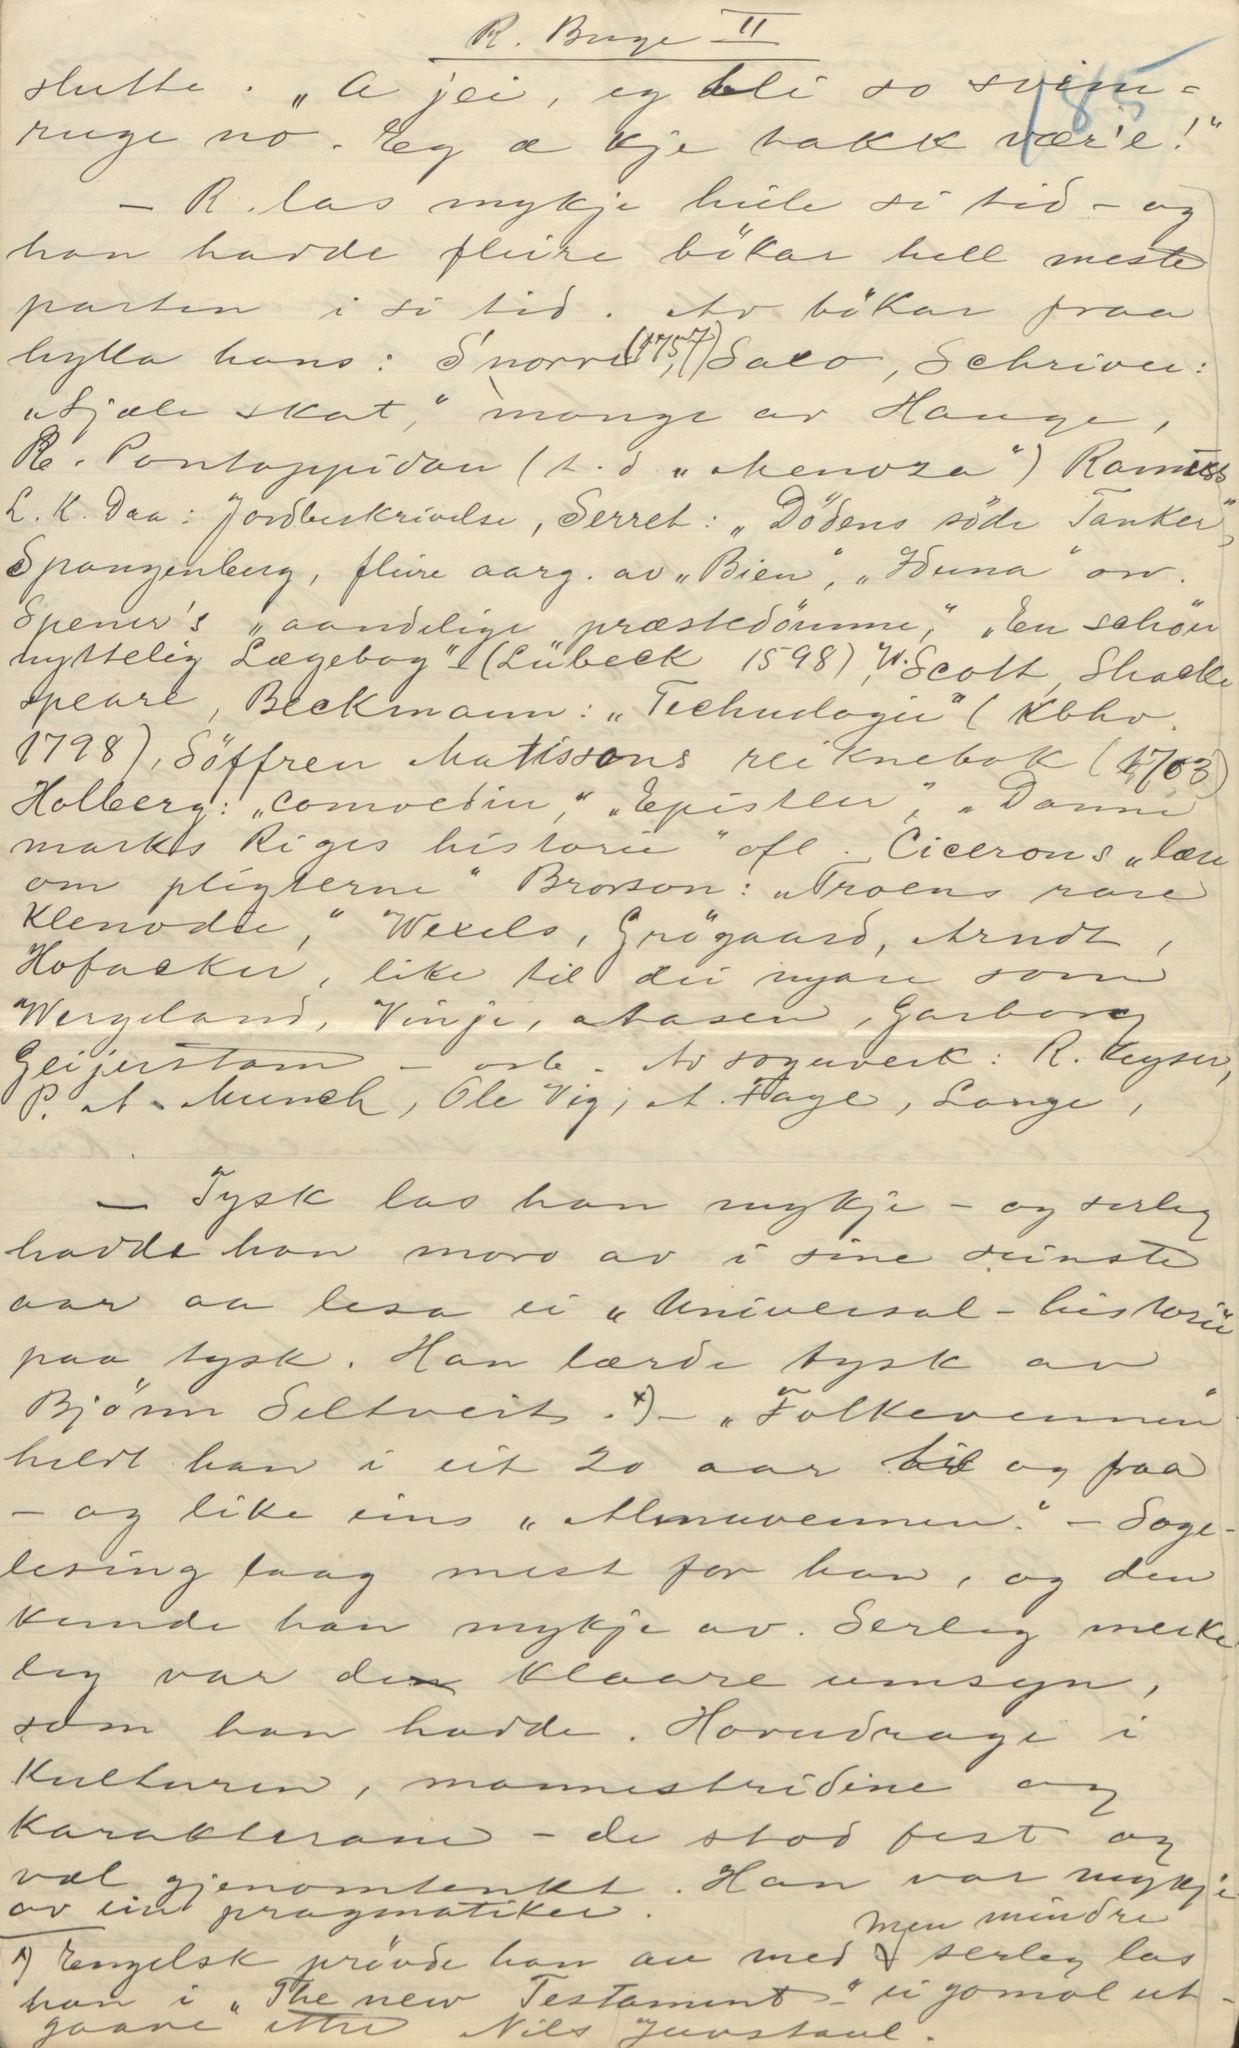 R. Bruge II
185
slutte. „A jei, eg bli so svim-
ruge no. Eg æ kje takk vær'e!"
– R. las mykje heile si tid – og
han hadde fleire bökar hell meste
parten i si tid. Av bökar fraa
hylla hans: Snorre (1757), Saxo, Schriver:
„Sjæle skat," mange av Hauge,
Pontoppidan (t.d. „Menoza")
L. K. Daa: Jordbeskrivelse, Serret: „Dödens söde Tanker",
Spangenberg, fleire aarg. av „Bien", „Iduna" osv.
Spener's „aandelige præstedömme," „En schön
nyttelig Lægebog" – (Lübeck 1598), W. Scott, Shacke
speare, Beckmann: „Technologie" (Kbhv.
1798), Söffren Matissons reiknebok (1703)
Holberg: „comoedier," „Epistler," „Danne
marks Riges historie" ofl. Cicerons „lære
om pligterne" Brorson: „Troens rare
Klenodie," Wexels, Grögaard, Arndt,
Hofacker, like til dei nyare som
Wergeland, Vinje, Aasen, Garborg
Geijerstam – osb. Av soguverk: R. Keyser,
P. A. Munch, Ole Vig, A. Faye, Lange,
– Tysk las han mykje – og serleg
hadde han moro av i sine seinste
aar aa lesa ei „Universal-historie"
paa tysk. Han lærde tysk av
Björn Seltveit. x) – „Folkevennen"
heldt han i eit 20 aar til og fraa
– og like eins „Almuvennen." – Soge-
lesing laag mest for han, og den
kunde han mykje av. Serleg merke
leg var den klaare umsyn,
som han hadde. Hovudrage i
Kulturen, mannestridine og
Karakterane – de stod fest og
væl gjenomtenkt. Han var mykje
av ein pragmatiker.
x) Engelsk prövde han au med men mindre serleg las
han i „The new Testament" – ei gomol ut-
gaave etter Nils Juvstaul.